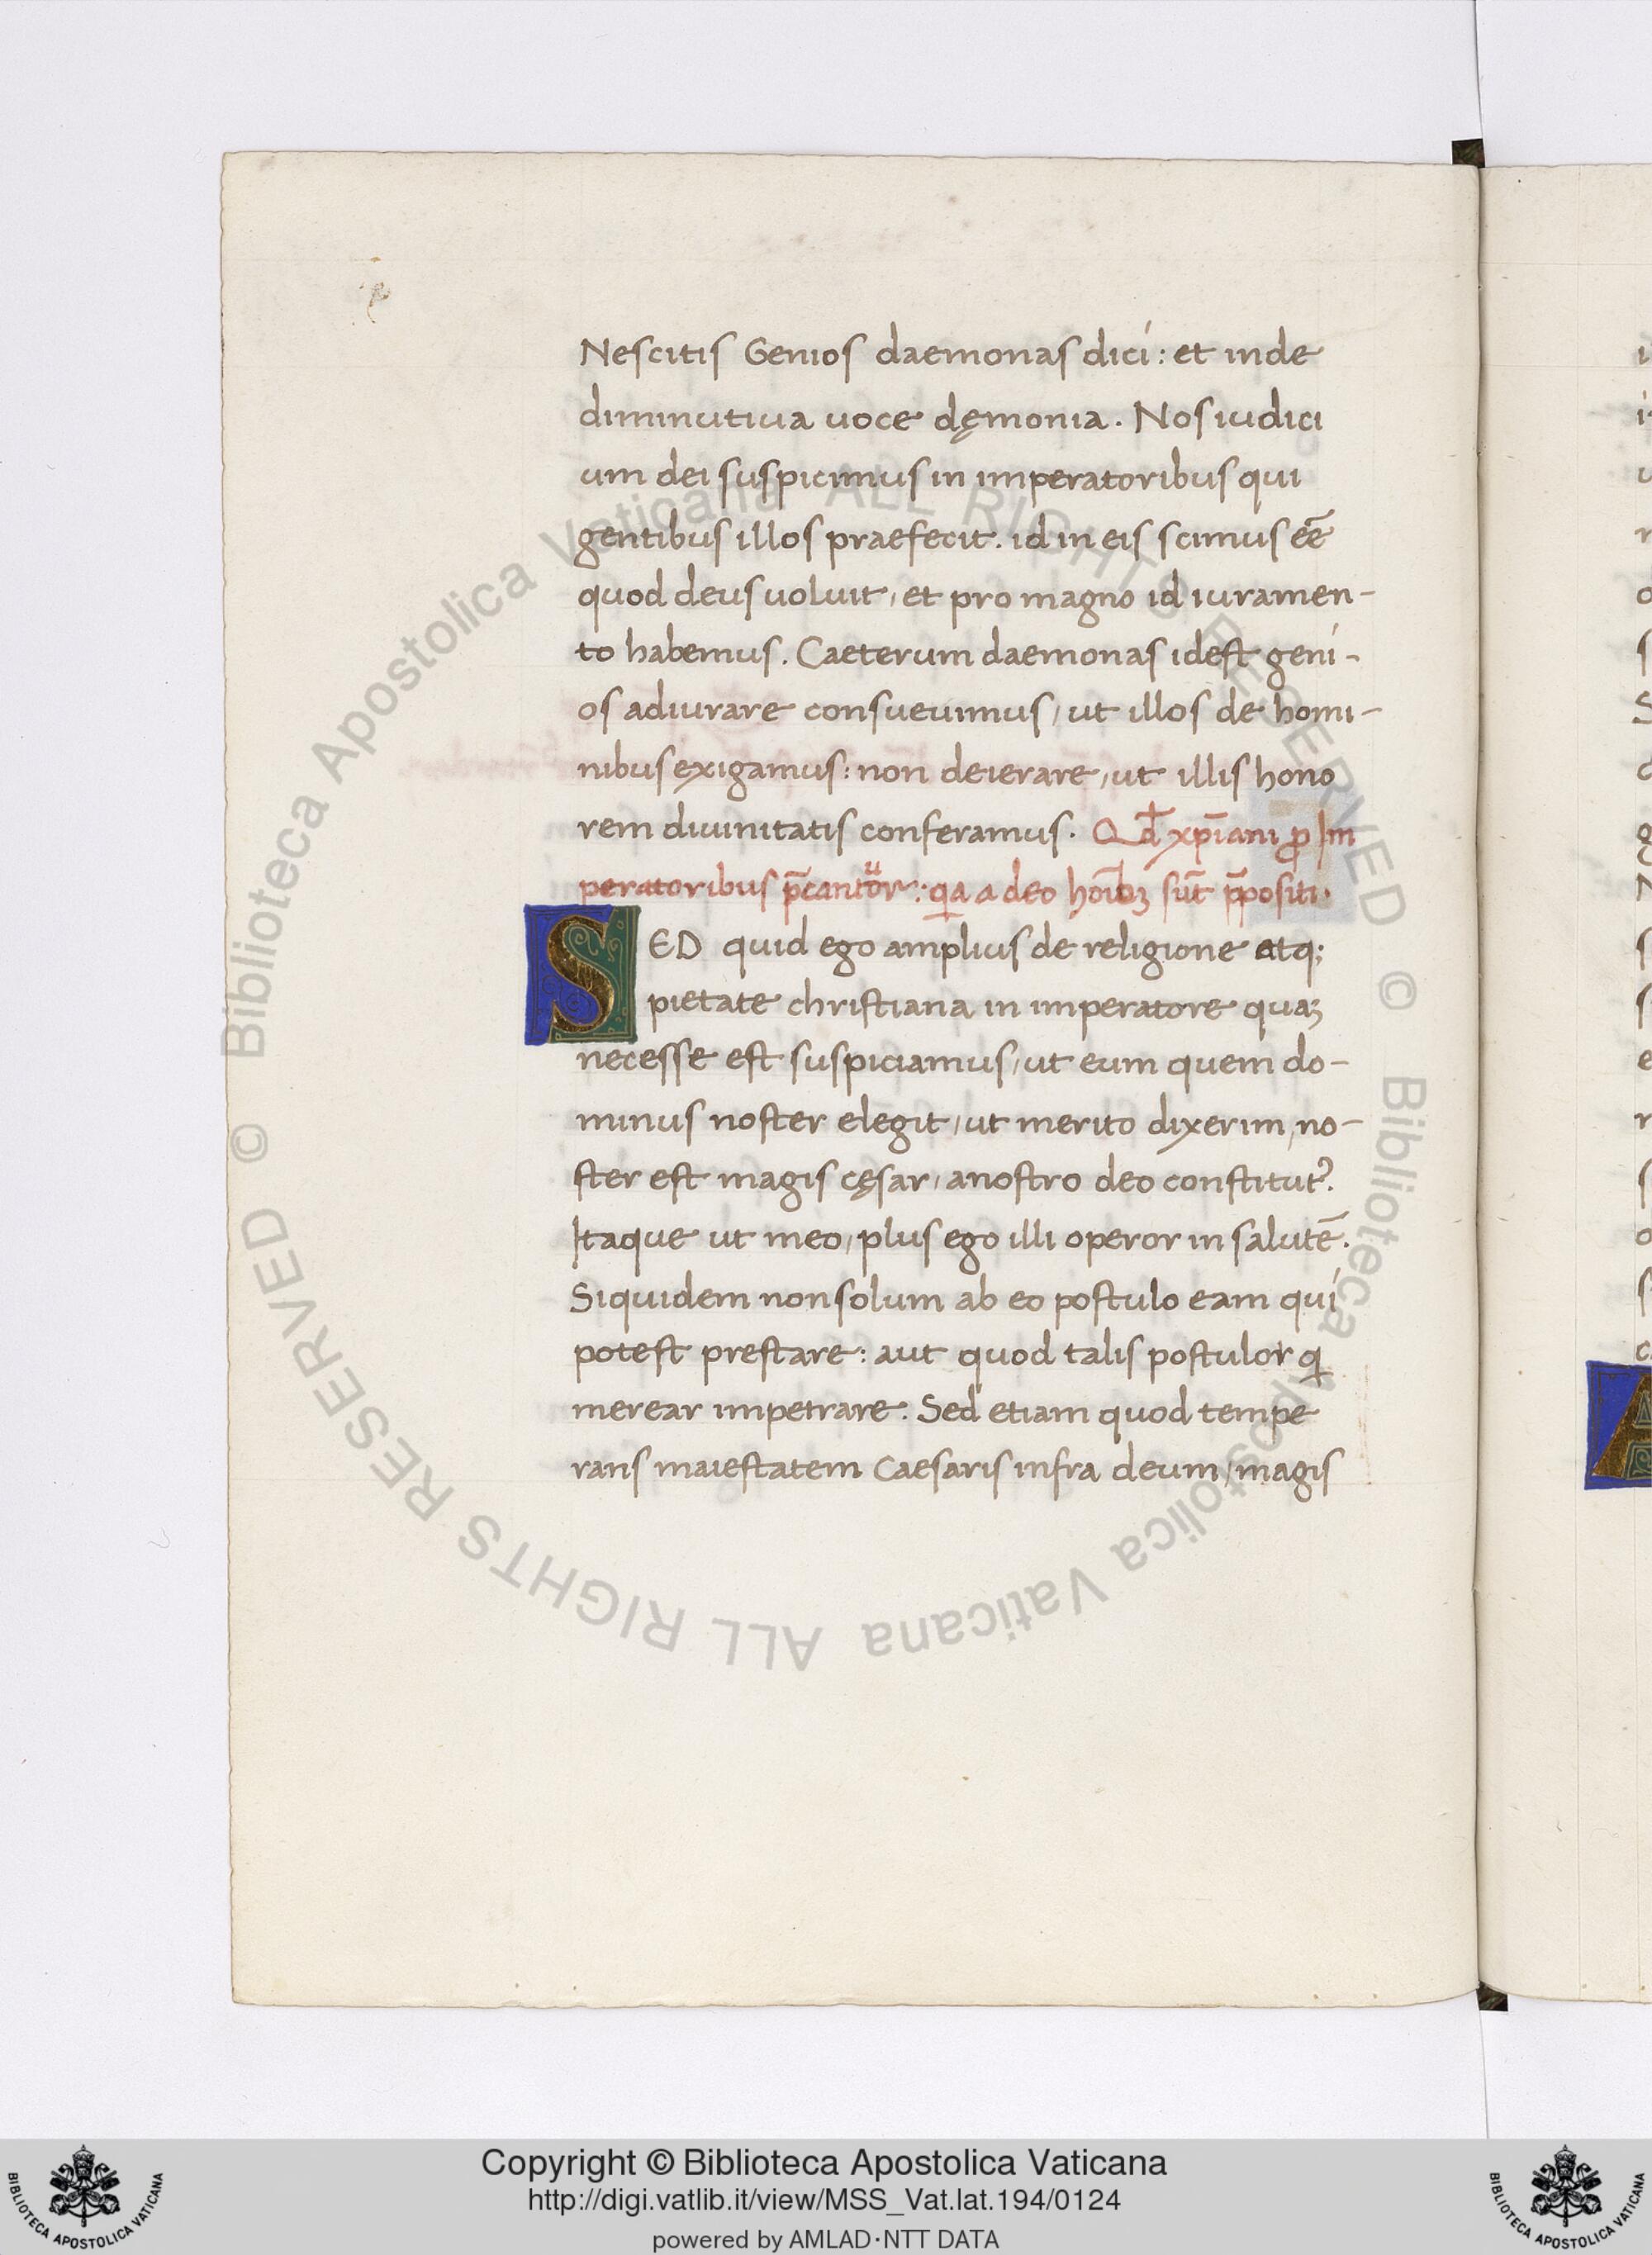 Nescitis Genios daemonas dici: et inde
diminutiua uoce dęmonia. Nos iudici
um dei suspicimus in imperatoribus qui
gentibus illos praefecit. id in eis scimus eē
quod deus uoluit, et pro magno id iuramen-
to habemus. Caeterum daemonas idest geni-
os adiurare consueuimus, ut illos de homi-
nibus exigamus: non deierare, ut illis hono
rem diuinitatis conferamus. Qđ xp̄iani ꝓ Im
peratoribus p̄cantur: qa a deo hoībꝫ sūt p̄positi.
SED quid ego amplius de religione atq;
pietate christiana in imperatore quaꝫ
necesse est suspiciamus, ut eum quem do-
minus noster elegit, ut merito dixerim, no-
ster est magis cęsar, anostro deo constitutꝰ.
Itaque ut meo, plus ego illi operor in salutē.
Siquidem non solum ab eo postulo eam qui
potest prestare: aut quod talis postulor q
merear impetrare. Sed etiam quod tempe
rans maiestatem Caesaris infra deum, magis
© Biblioteca Apostolica Vaticana ALL RIGHTS RESERVED
© Biblioteca Apostolica Vaticana ALL RIGHTS RESERVED
Copyright © Biblioteca Apostolica Vaticana
http://digi.vatlib.it/view/MSS_Vat.lat.194/0124
powered by AMLAD·NTT DATA
BIBLIOTECA APOSTOLICA VATICANA
BIBLIOTECA APOSTOLICA VATICANA